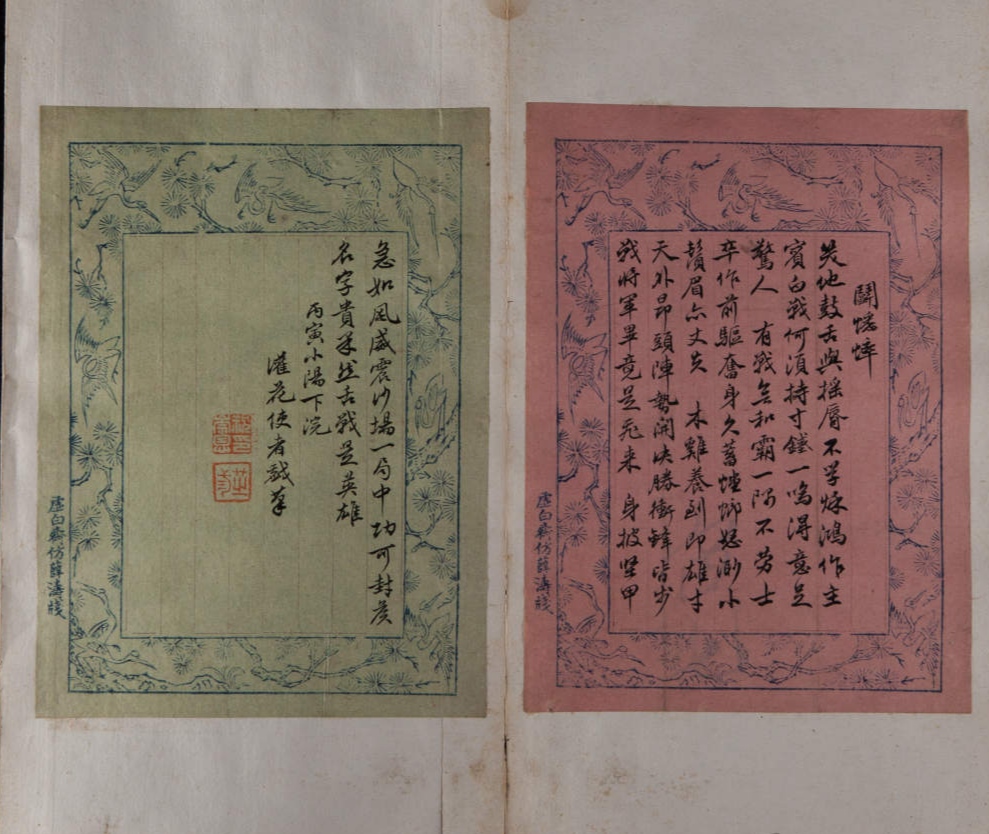 鬪蟋蟀
笑他鼓舌與摇脣不學秌鴻作主
賓白戰何須持寸鐵一鳴得意足
驚人 有戰無和霸一隅不勞士
卒作前驅奮身久蓄螳螂怒渺小
鬚眉亦丈夫 木雞養到即雄才
天外昂頭陣勢開決勝衝鋒皆步
戰將軍畢竟是飛來 身披堅甲
虛白齋仿薛濤牋
急如風威震沙場一局中功可封矦
名字貴果然舌戰是英雄
丙寅小陽下浣
灌花使者戲
虛白齋仿薛濤牋